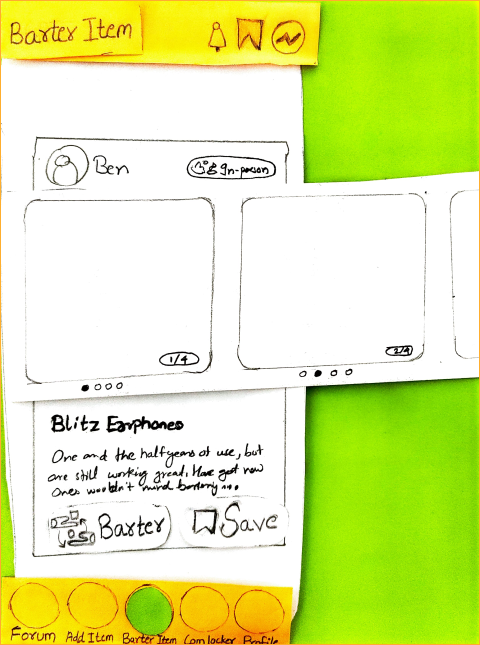 Barter Item
Ben
In-person
1/4
2/4
Blitz Earphones
One and the half years of use, but
are still working great, Have got new
ones wouldn't mind bartering...
Barter
Save
Forum
Add Item
Barter Item
Com locker
Profile